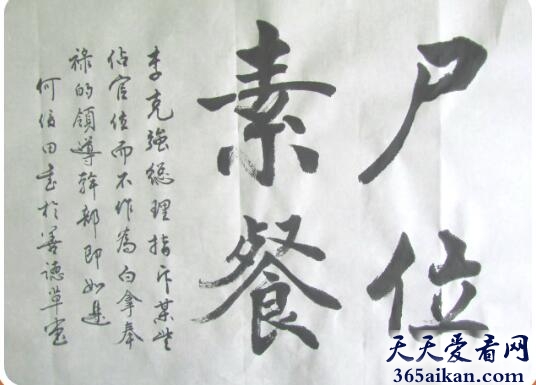 尸位
素餐
李克強總理指斥某些
佔官位而不作為白拿奉
祿的領導幹部即如是
何伯田書於善德草堂
天天爱看网
365aikan.com